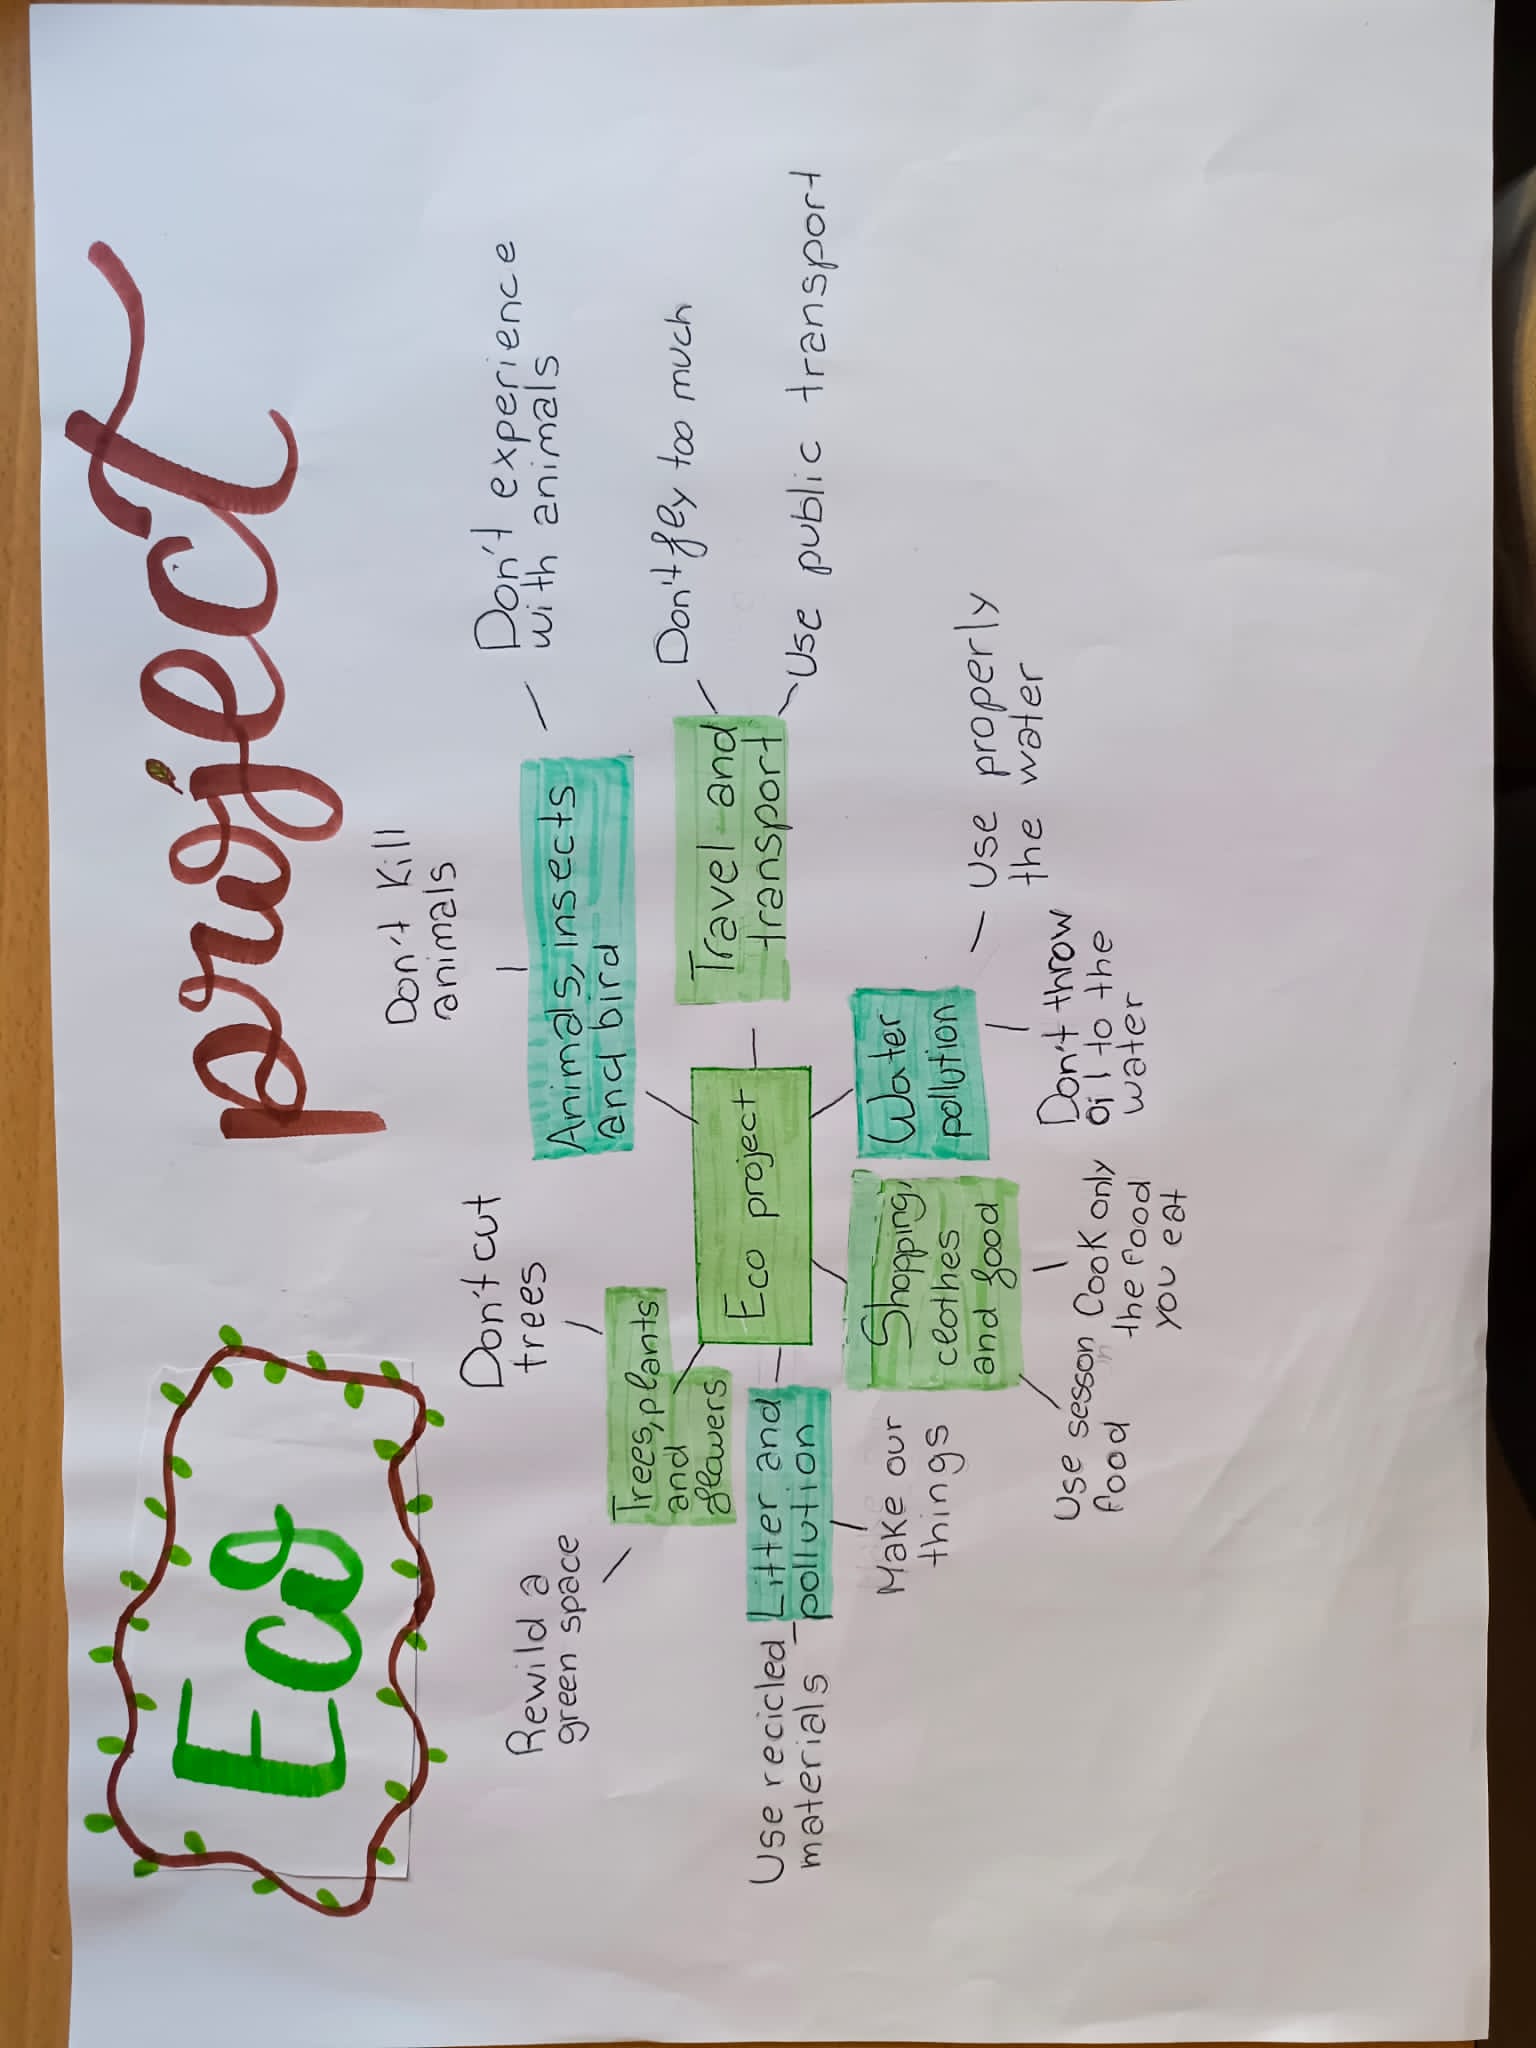 Eco project
Don't cut
trees
Don't kill
animals
Don't experience
with animals
Rewild a
green space
Trees, plants
and
flowers
Animals, insects
and bird
Don't fey too much
Travel and
transport
Use public transport
Eco project
Use recicled
materials
Litter and
pollution
Make our
things
Shopping,
clothes
and food
Water
pollution
Use properly
the water
Use sesson
food
Cook only
the food
you eat
Don't throw
oil to the
water